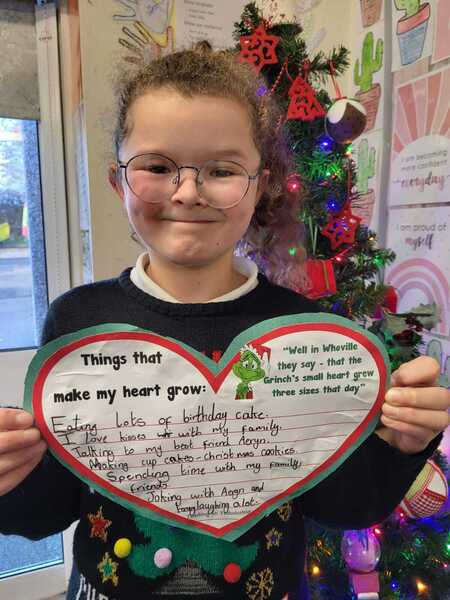 I am becoming
more confident
everyday
I am proud of
myself
Things that
make my heart grow:
"Well in Whoville
they say - that the
Grinch's small heart grew
three sizes that day"
Eating lots of birthday cake.
I love kisses with my family.
Talking to my best friend Aegn.
Making cup cakes - christmas cookies.
Spending time with my family,
friends.
Joking with Aegn and
laughing a lot.